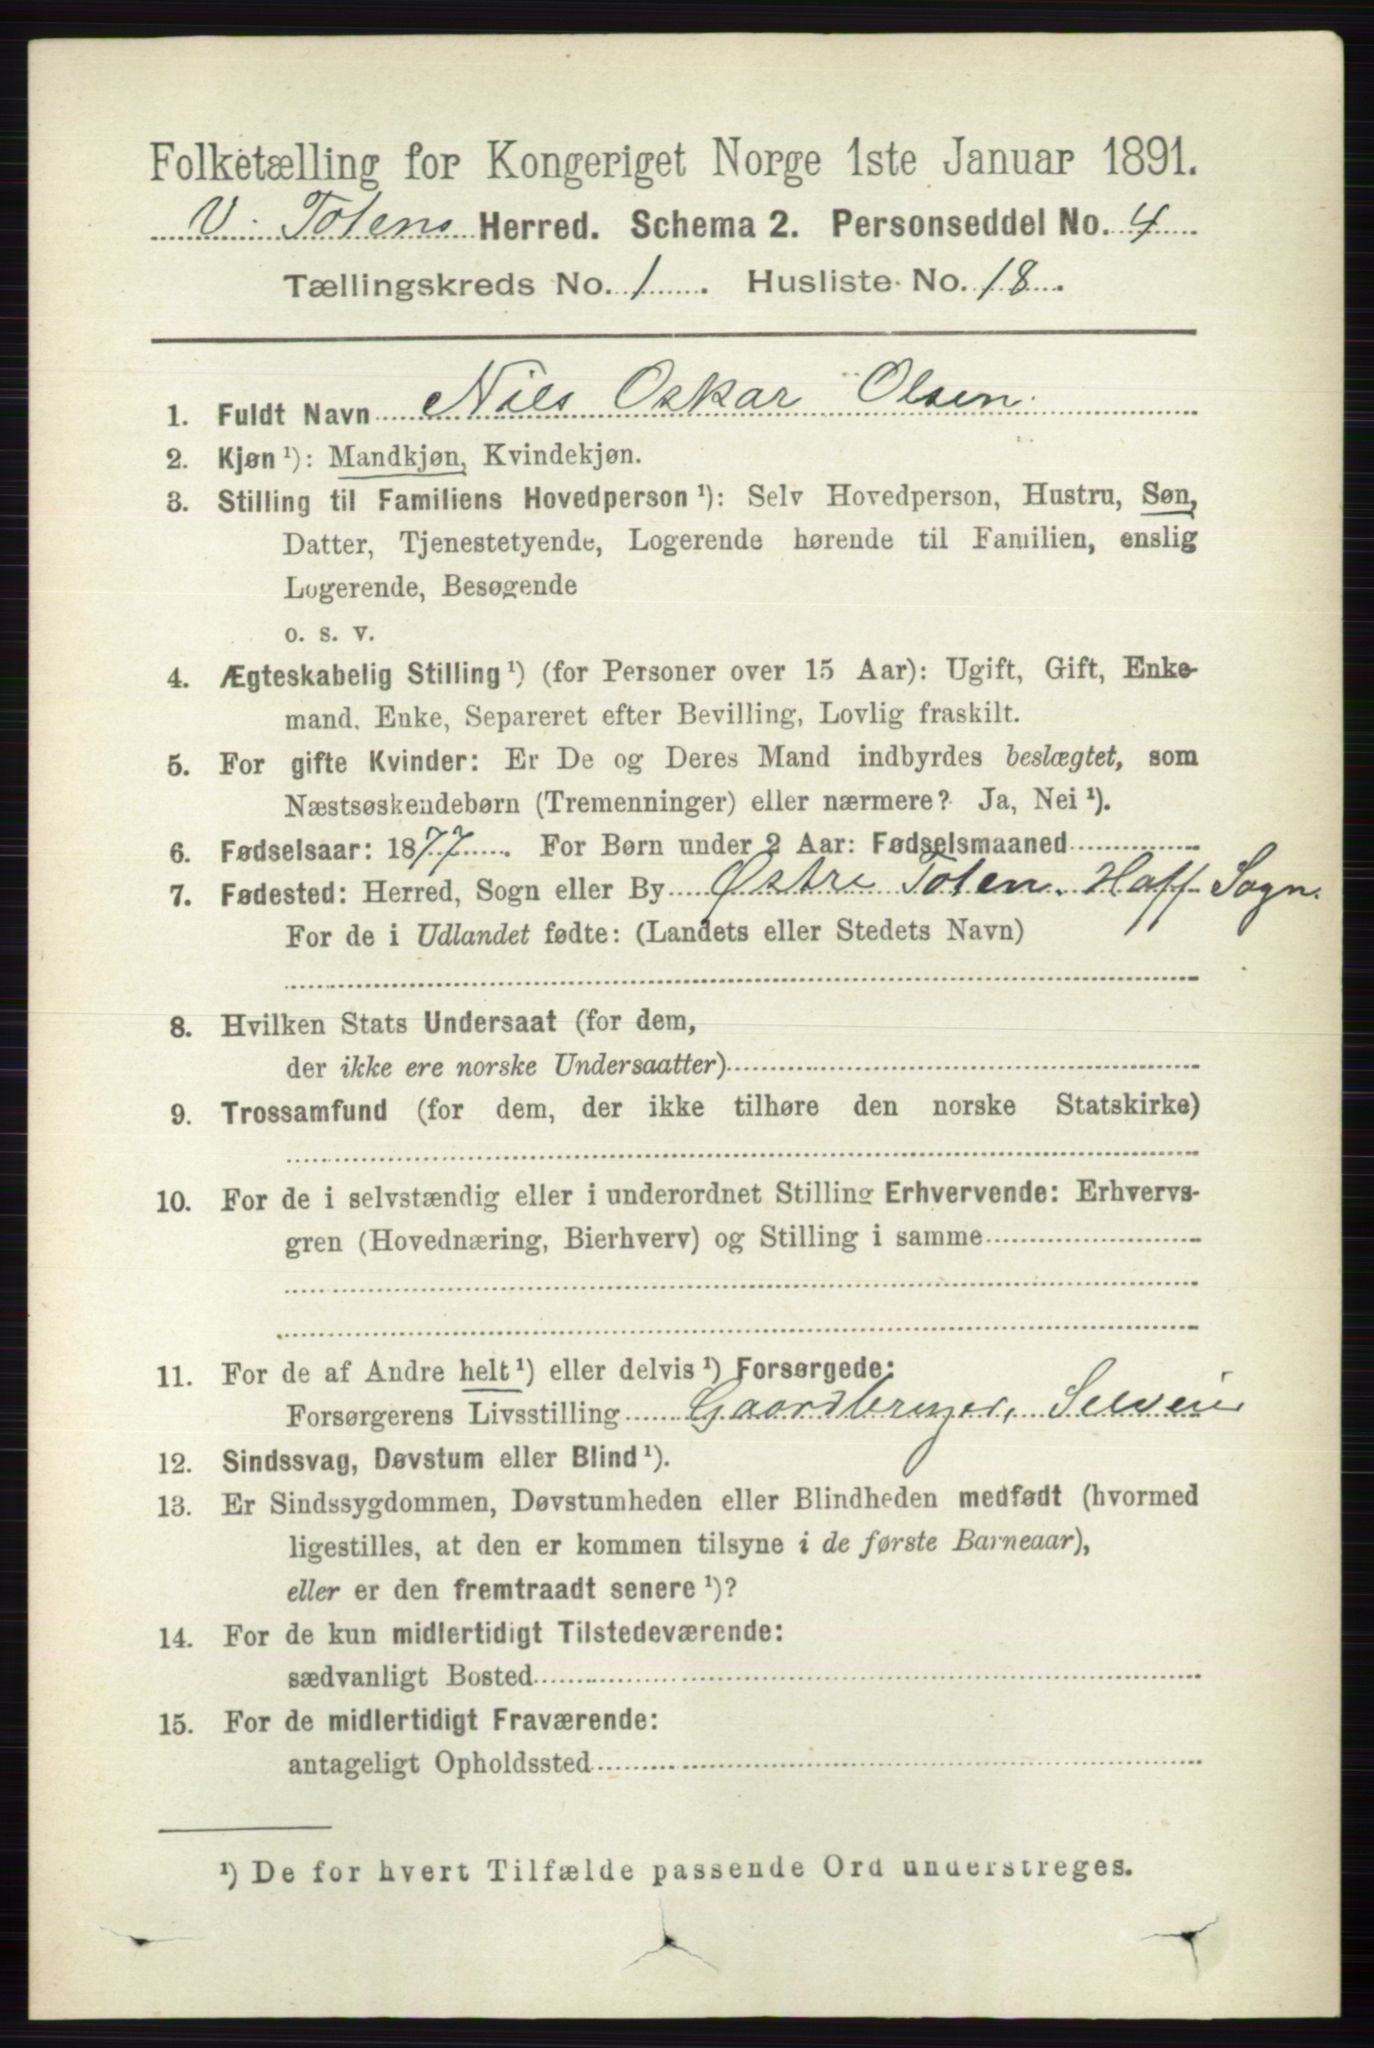 Folketælling for Kongeriget Norge 1ste Januar 1891.
V. Totens Herred. Schema 2. Personseddel No. 4
Tællingskreds No. 1. Husliste No. 18.
1. Fuldt Navn Nils Oskar Olsen
2. Kjøn ¹): Mandkjøn, Kvindekjøn.
3. Stilling til Familiens Hovedperson ¹): Selv Hovedperson, Hustru, Søn,
Datter, Tjenestetyende, Logerende hørende til Familien, enslig
Logerende, Besøgende
o. s. v.
4. Ægteskabelig Stilling ¹) (for Personer over 15 Aar): Ugift, Gift, Enke-
mand, Enke, Separeret efter Bevilling, Lovlig fraskilt.
5. For gifte Kvinder: Er De og Deres Mand indbyrdes beslægtet, som
Næstsøskendebørn (Tremenninger) eller nærmere? Ja, Nei ¹).
6. Fødselsaar: 1877. For Børn under 2 Aar: Fødselsmaaned
7. Fødested: Herred, Sogn eller By Østre Toten. Hoff Sogn.
For de i Udlandet fødte: (Landets eller Stedets Navn)
8. Hvilken Stats Undersaat (for dem,
der ikke ere norske Undersaatter)
9. Trossamfund (for dem, der ikke tilhøre den norske Statskirke)
10. For de i selvstændig eller i underordnet Stilling Erhvervende: Erhvervs-
gren (Hovednæring, Bierhverv) og Stilling i samme
11. For de af Andre helt ¹) eller delvis ¹) Forsørgede:
Forsørgerens Livsstilling Gaardbruger, Selveier
12. Sindssvag, Døvstum eller Blind ¹).
13. Er Sindssygdommen, Døvstumheden eller Blindheden medfødt (hvormed
ligestilles, at den er kommen tilsyne i de første Barneaar),
eller er den fremtraadt senere ¹)?
14. For de kun midlertidigt Tilstedeværende:
sædvanligt Bosted
15. For de midlertidigt Fraværende:
antageligt Opholdssted
¹) De for hvert Tilfælde passende Ord understreges.